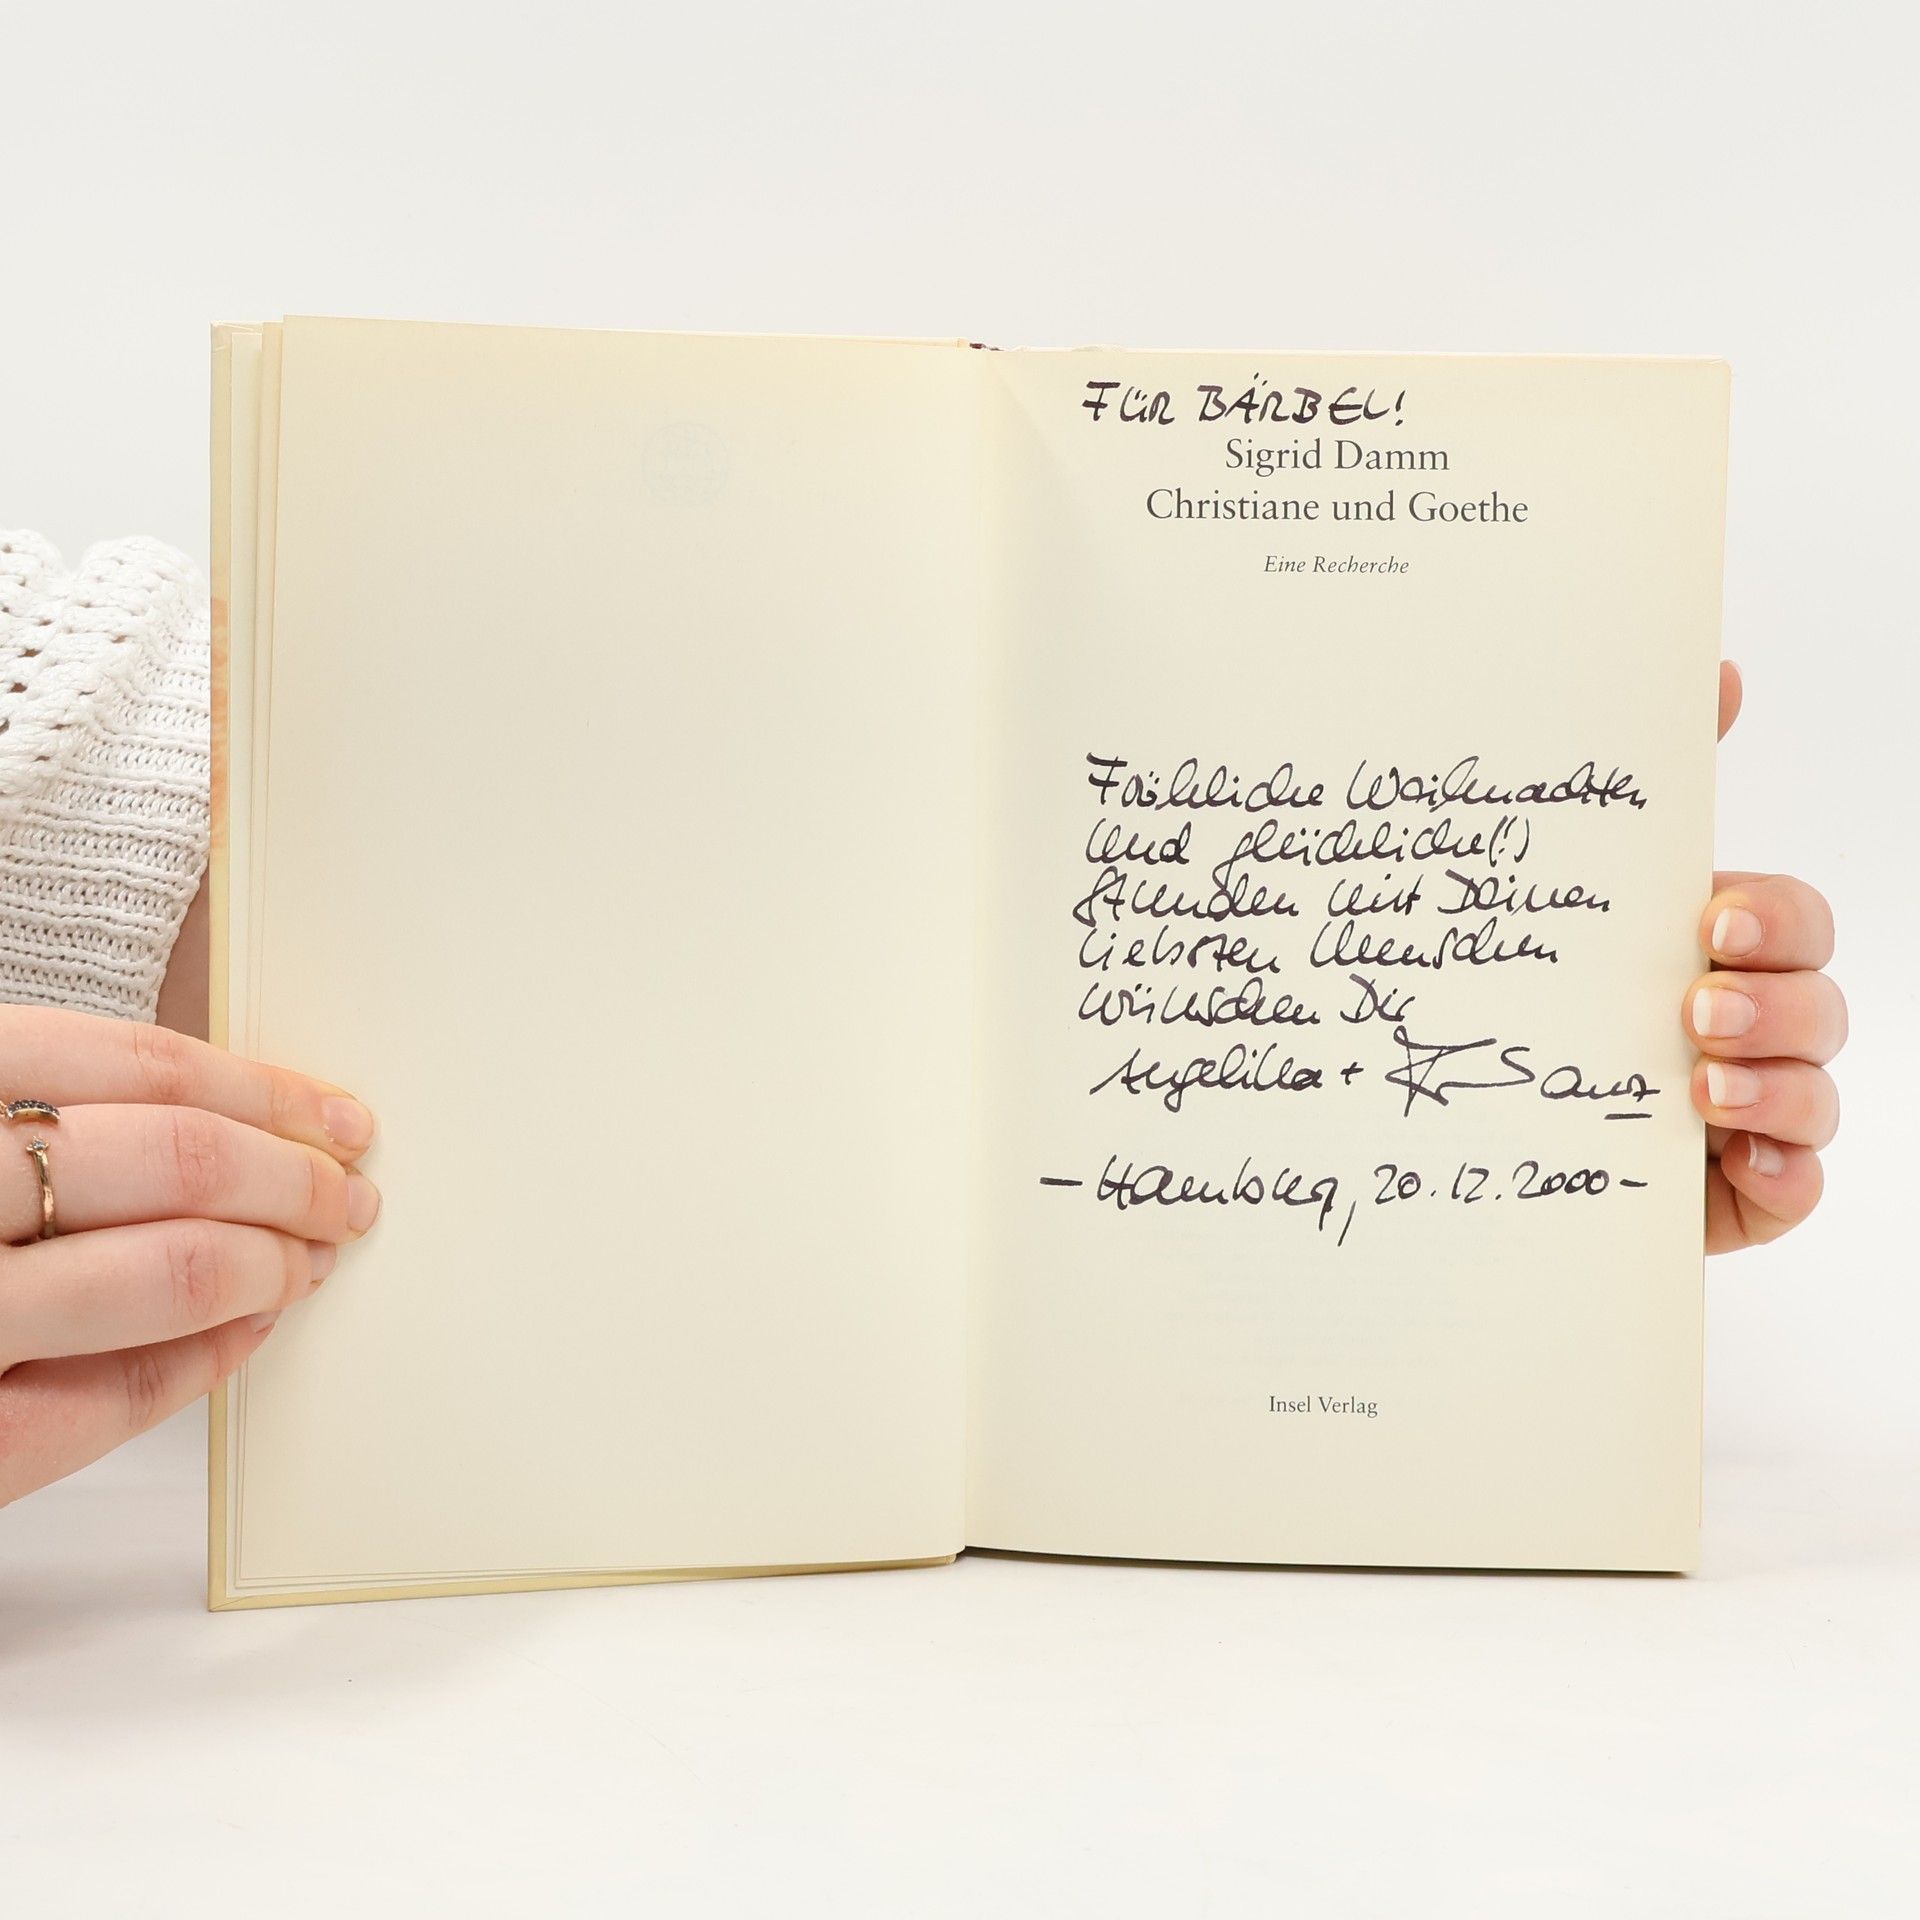 FÜR BÄRBEL!
Sigrid Damm
Christiane und Goethe
Eine Recherche
Fröhliche Weihnachten
und glückliche(!)
Stunden mit Deinen
liebsten Menschen
wünschen Dir
Angelika +
- Hamburg, 20.12.2000 -
Insel Verlag